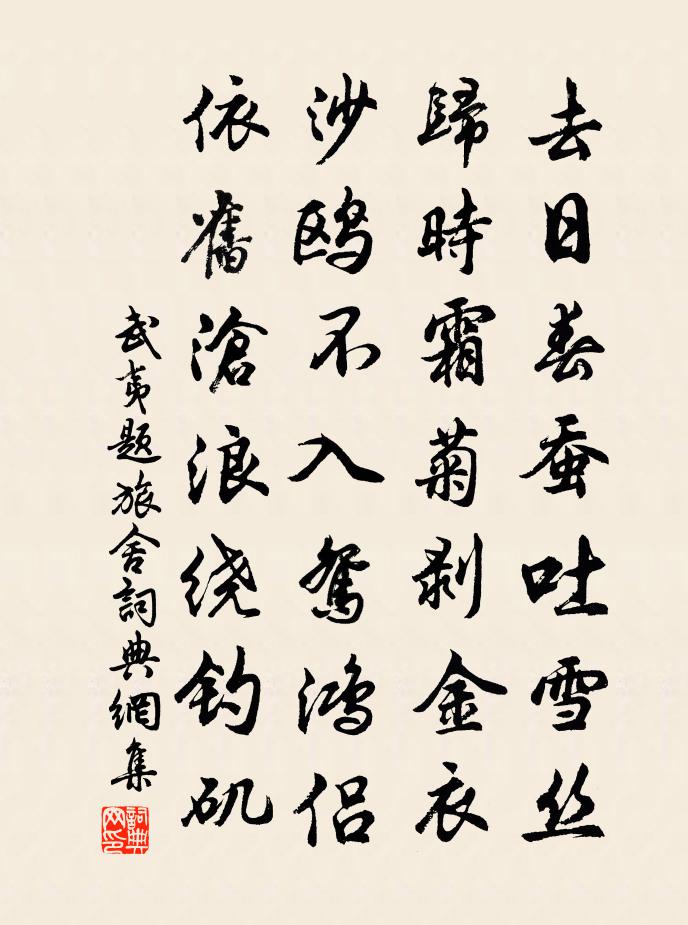 去日春蚕吐雪丝
歸時霜菊剥金衣
沙鸥不入鴛鴻侣
依舊滄浪绕钓矶
武夷題旅舍詞典網集
詞典
网印